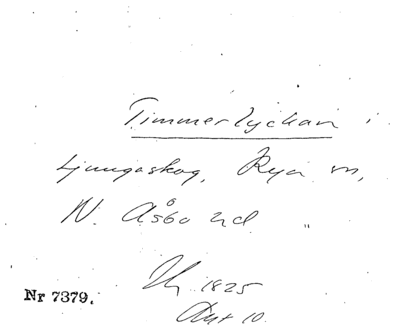 Timmerlyckan i
Ljungaskog, Rya sn,
N. Åsbo hd "
1825
Nr 7379.
10